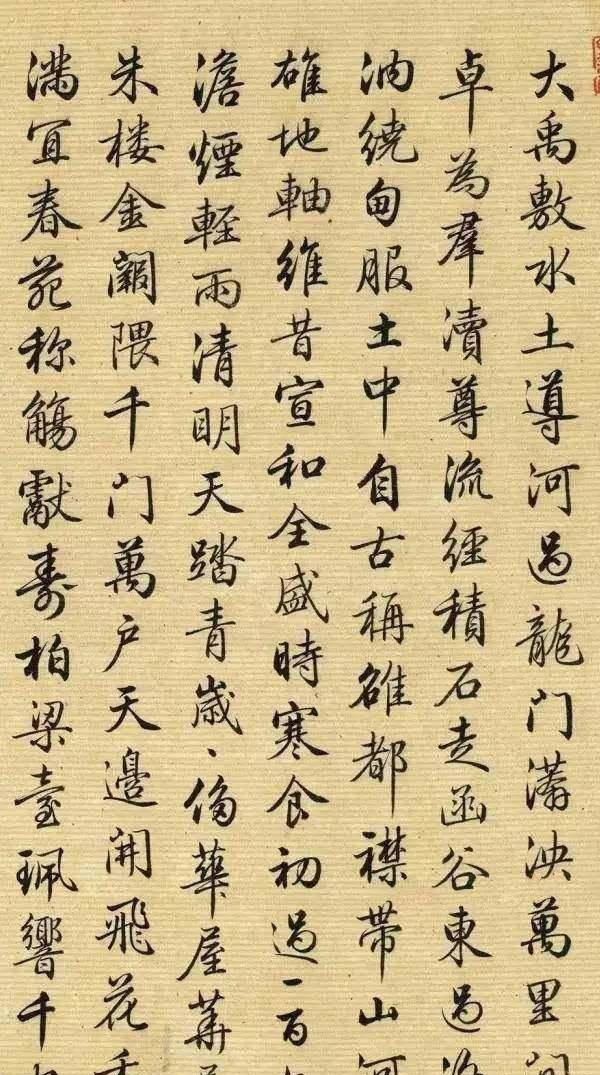 大禹敷水土導河過龍门瀁泱萬里
卓為羣瀆尊流經積石走函谷東過
汭繞甸服土中自古稱雒都襟帶山河
雄地軸維昔宣和全盛時寒食初過一百
澹煙輕雨清明天踏青歲、傷華屋
朱楼金闕隈千门萬户天邊開飛花
满宜春苑称觴獻寿柏梁臺珮響千